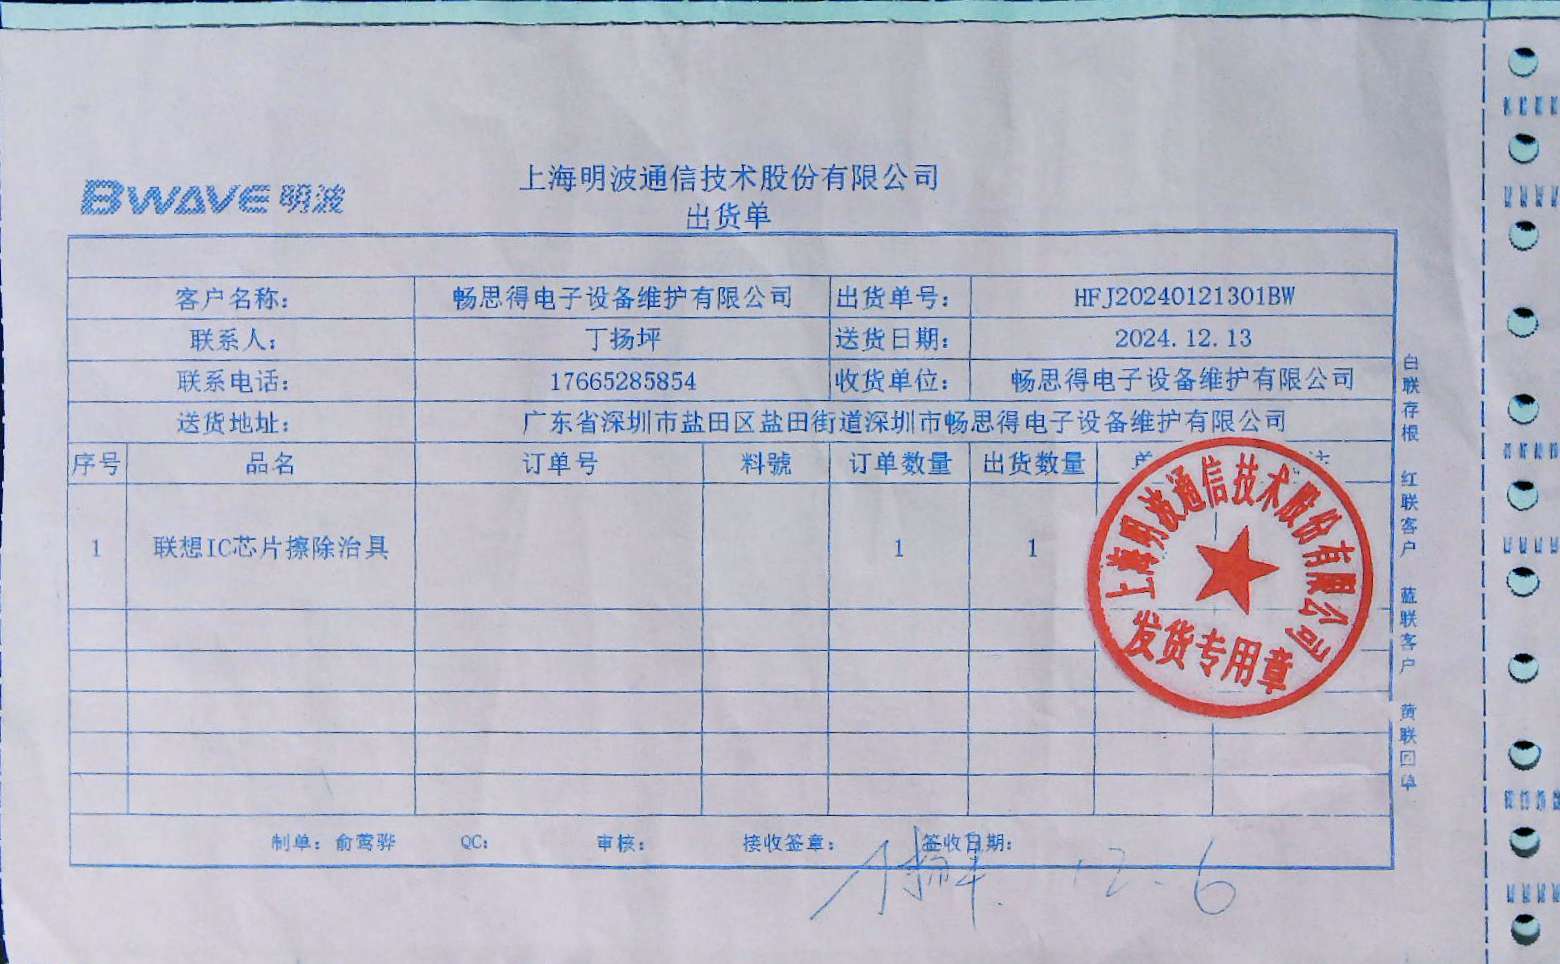 BWAVE 明波
上海明波通信技术股份有限公司
出货单
客户名称： 畅思得电子设备维护有限公司 出货单号： HFJ20240121301BW
联系人： 丁扬坪 送货日期： 2024.12.13
联系电话： 17665285854 收货单位： 畅思得电子设备维护有限公司
送货地址： 广东省深圳市盐田区盐田街道深圳市畅思得电子设备维护有限公司
序号 品名 订单号 料號 订单数量 出货数量
1 联想IC芯片擦除治具 1 1
上海明波通信技术股份有限公司
发货专用章
制单：俞莺骅 QC： 审核： 接收签章： 签收日期：
12.6
白联存根 红联客户 蓝联客户 黄联回单